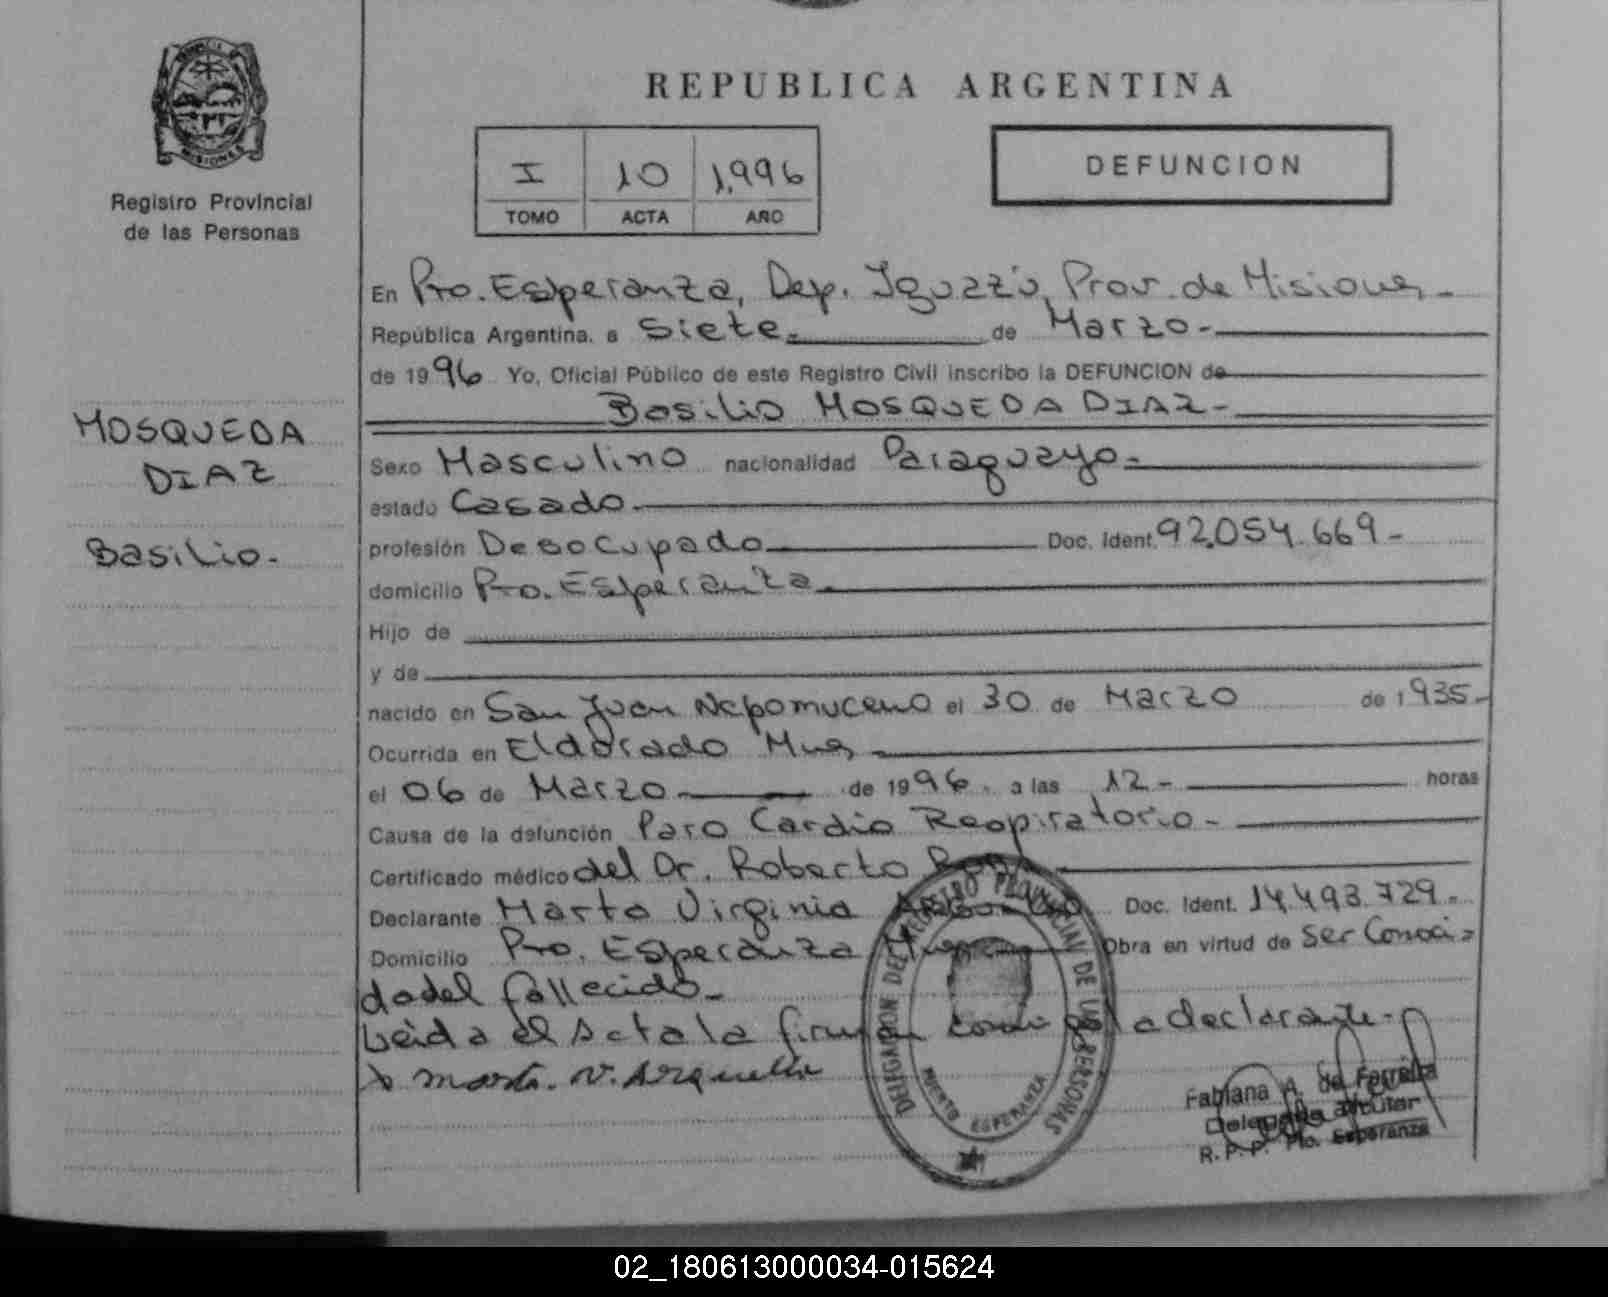 REPUBLICA ARGENTINA
MISIONES
Registro Provincial
de las Personas
I 10 1.996
TOMO ACTA AÑO
DEFUNCION
MOSQUEDA
DIAZ
Basilio.-
En Pto. Esperanza, Dep. Iguazú, Prov. de Misiones.-
República Argentina, a Siete.- de Marzo.-
de 1996 Yo, Oficial Público de este Registro Civil inscribo la DEFUNCION de
Basilio MOSQUEDA DIAZ.-
Sexo Masculino nacionalidad Paraguayo.-
estado Casado.-
profesión Desocupado Doc. Ident. 92.054.669.-
domicilio Pto. Esperanza.-
Hijo de
y de
nacido en San Juan Nepomuceno el 30 de Marzo de 1935.-
Ocurrida en Eldorado Mnes.-
el 06 de Marzo.- de 1996. a las 12.- horas
Causa de la defunción Paro Cardio Respiratorio.-
Certificado médico del Dr. Roberto
Declarante Marta Virginia Doc. Ident. 14.493.729.-
Domicilio Pto. Esperanza Obra en virtud de Ser Conoci-
da del fallecido.-
Leida el acta la firman la declarante.-
Marta. V.
DELEGACION DEL REGISTRO PROVINCIAL DE LAS PERSONAS
PUERTO ESPERANZA
Fabiana A. de Ferreira
Delegada Titular
R.P.P. Pto. Esperanza
02_180613000034-015624